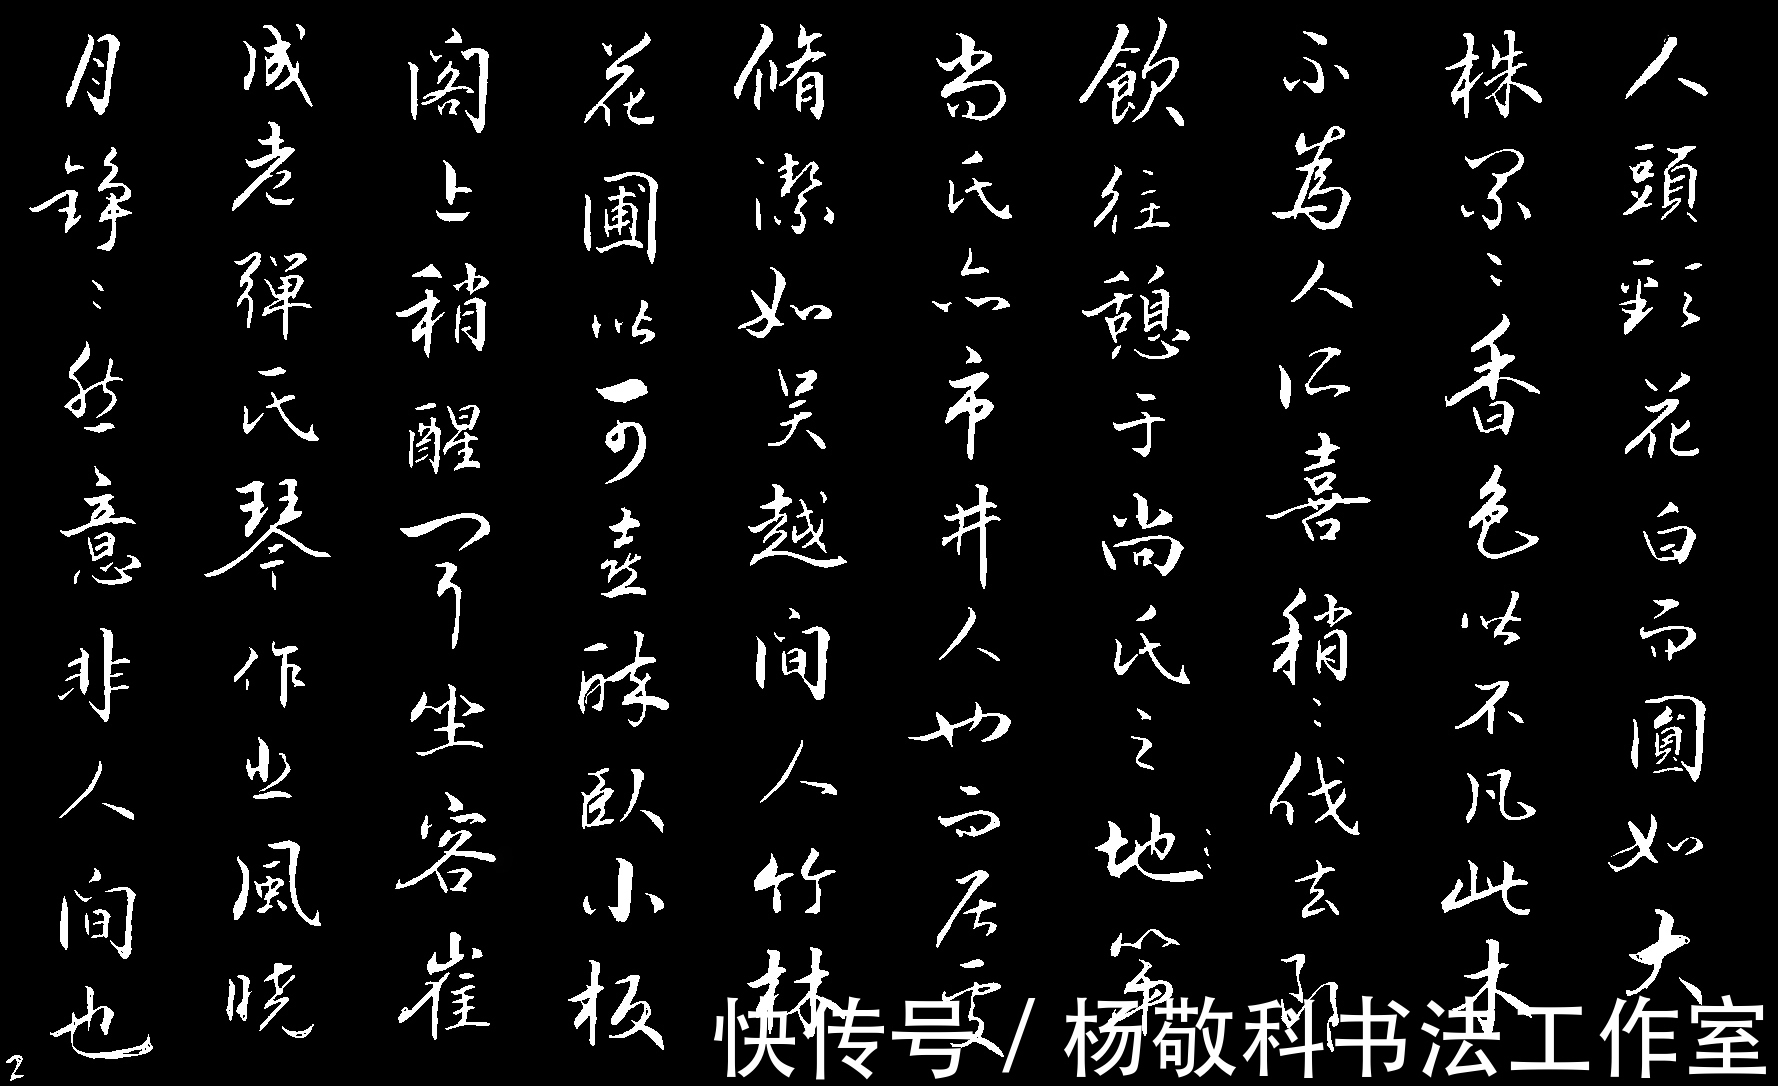 人頭頸花白而圓如大
株累〻香色皆不凡此木
不為人所喜稍〻伐去及
飲往憩于尚氏之地第
尚氏亦市井人也而居處
脩潔如吴越間人竹林
花圃皆可喜醉卧小板
閣上稍醒聞坐客崔
成老彈氏琴作悲風曉
月錚〻然意非人間也
2
快传号/杨敬科书法工作室